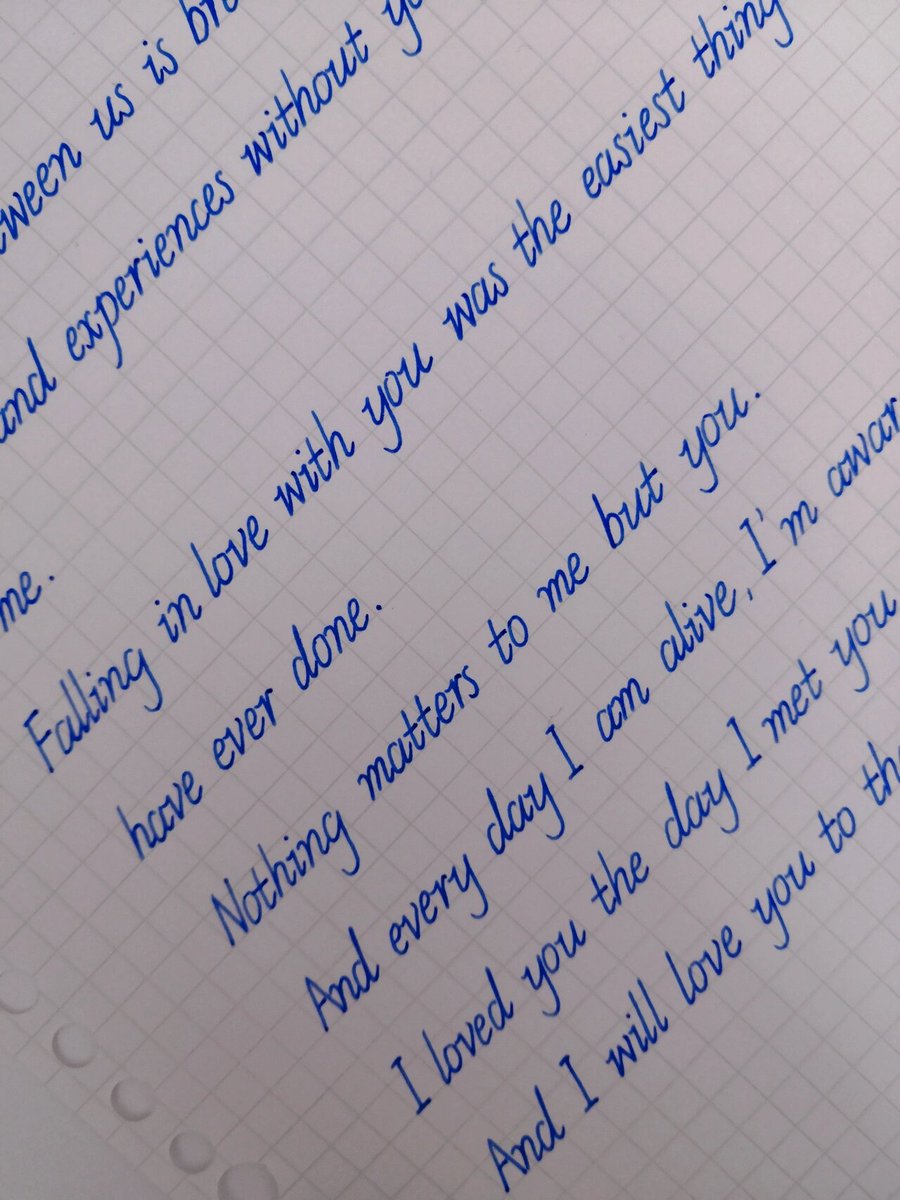 us is
and experiences without
me.
Falling in love with you was the easiest thing
have ever done.
Nothing matters to me but you.
And every day I am alive, I'm
I loved you the day I met you
And I will love you to